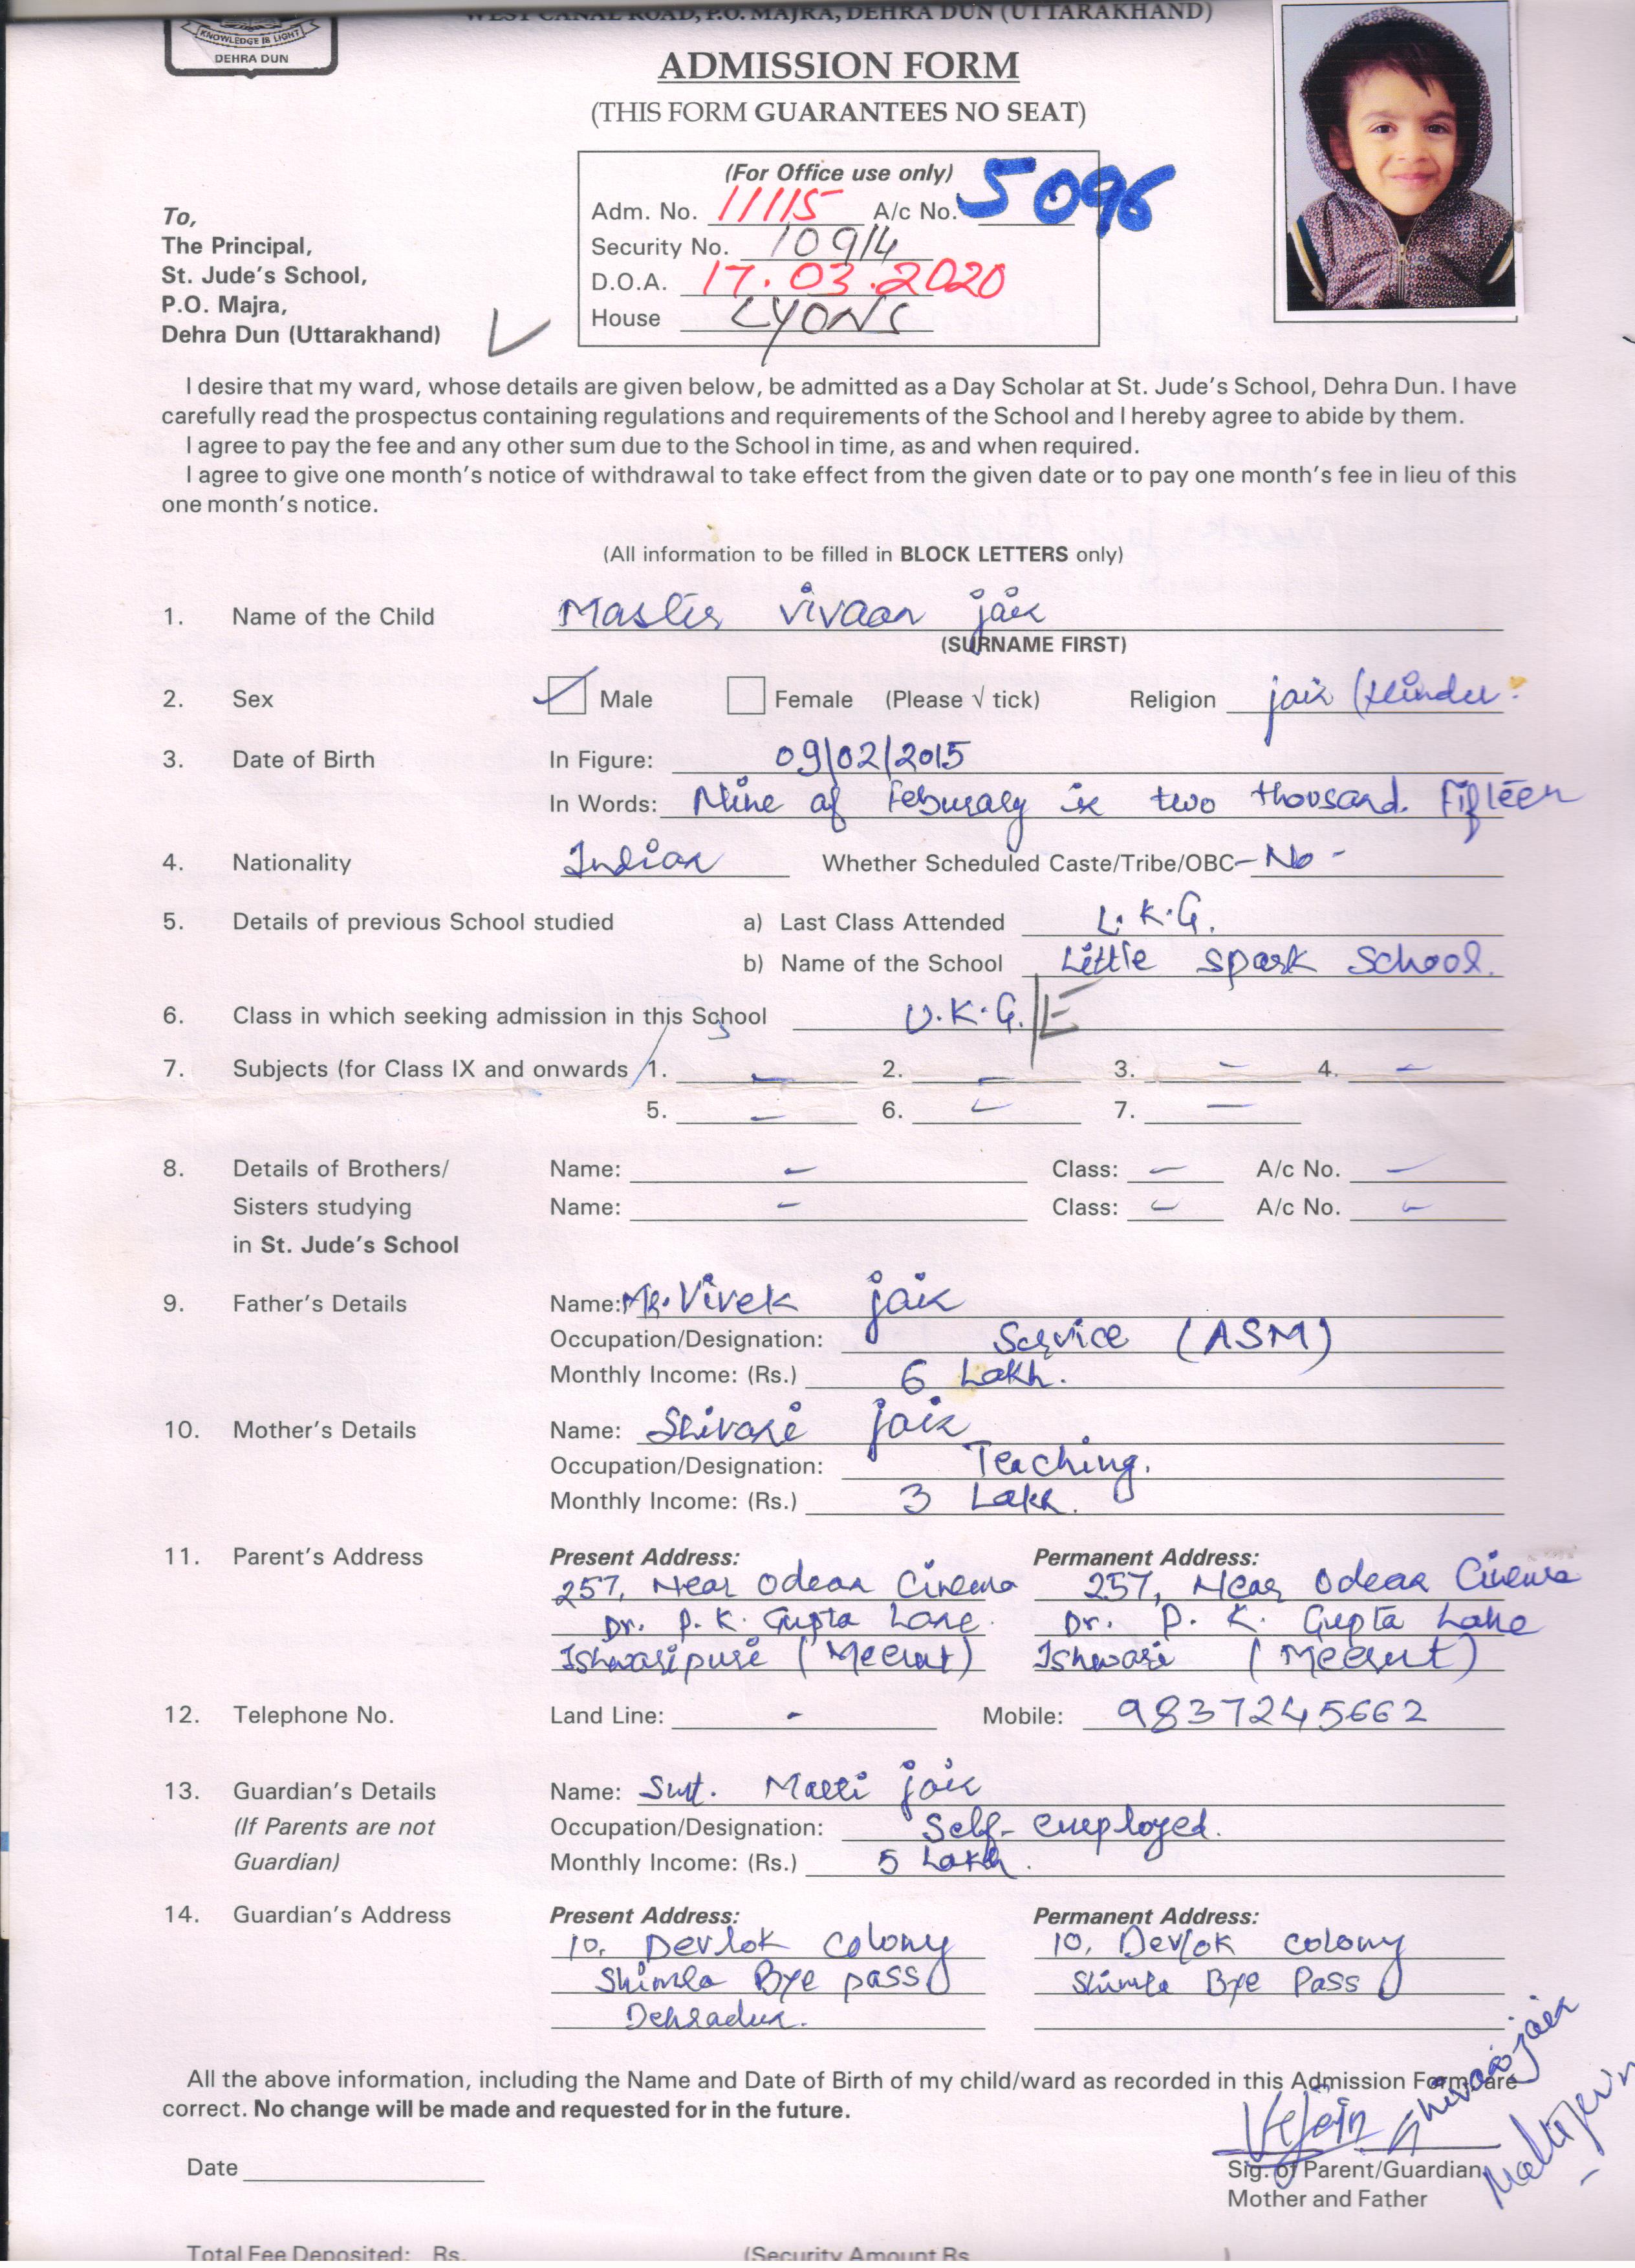 WEST CANAL ROAD, P.O. MAJRA, DEHRA DUN (UTTARAKHAND)
KNOWLEDGE IS LIGHT
DEHRA DUN
ADMISSION FORM
(THIS FORM GUARANTEES NO SEAT)
(For Office use only)
Adm. No. 11115 A/c No. 5096
Security No. 10914
D.O.A. 17.03.2020
House LYONS
To,
The Principal,
St. Jude's School,
P.O. Majra,
Dehra Dun (Uttarakhand)
I desire that my ward, whose details are given below, be admitted as a Day Scholar at St. Jude's School, Dehra Dun. I have
carefully read the prospectus containing regulations and requirements of the School and I hereby agree to abide by them.
I agree to pay the fee and any other sum due to the School in time, as and when required.
I agree to give one month's notice of withdrawal to take effect from the given date or to pay one month's fee in lieu of this
one month's notice.
(All information to be filled in BLOCK LETTERS only)
1. Name of the Child Master vivaan jain
(SURNAME FIRST)
2. Sex Male Female (Please √ tick) Religion jain (Hindu
3. Date of Birth In Figure: 09/02/2015
In Words: Nine of Feburary in two thousand. Fifteen
4. Nationality Indian Whether Scheduled Caste/Tribe/OBC - No -
5. Details of previous School studied a) Last Class Attended L.K.G.
b) Name of the School Little spark School.
6. Class in which seeking admission in this School U.K.G./E
7. Subjects (for Class IX and onwards 1. - 2. - 3. - 4. -
5. - 6. - 7. -
8. Details of Brothers/ Name: - Class: - A/c No. -
Sisters studying Name: - Class: - A/c No. -
in St. Jude's School
9. Father's Details Name: Mr. Vivek jain
Occupation/Designation: Service (ASM)
Monthly Income: (Rs.) 6 Lakh.
10. Mother's Details Name: Shivani jain
Occupation/Designation: Teaching.
Monthly Income: (Rs.) 3 Lakh.
11. Parent's Address Present Address: Permanent Address:
257, Near Odean Cinema 257, Near Odean Cinema
Dr. P. K. Gupta Lane. Dr. P. K. Gupta Lane
Ishwaripuri (Meerut) Ishwari (Meerut)
12. Telephone No. Land Line: - Mobile: 9837245662
13. Guardian's Details Name: Smt. Malti jain
(If Parents are not Occupation/Designation: Self-employed.
Guardian) Monthly Income: (Rs.) 5 Lakh.
14. Guardian's Address Present Address: Permanent Address:
10, Devlok Colony 10, Devlok colony
Shimla Bye pass Shimla Bye Pass
Dehradun.
All the above information, including the Name and Date of Birth of my child/ward as recorded in this Admission Form are
correct. No change will be made and requested for in the future.
VKJain Shivani jain
Malti Jain
Date
Sig. of Parent/Guardian
Mother and Father
Total Fee Deposited: Rs. (Security Amount Rs. )